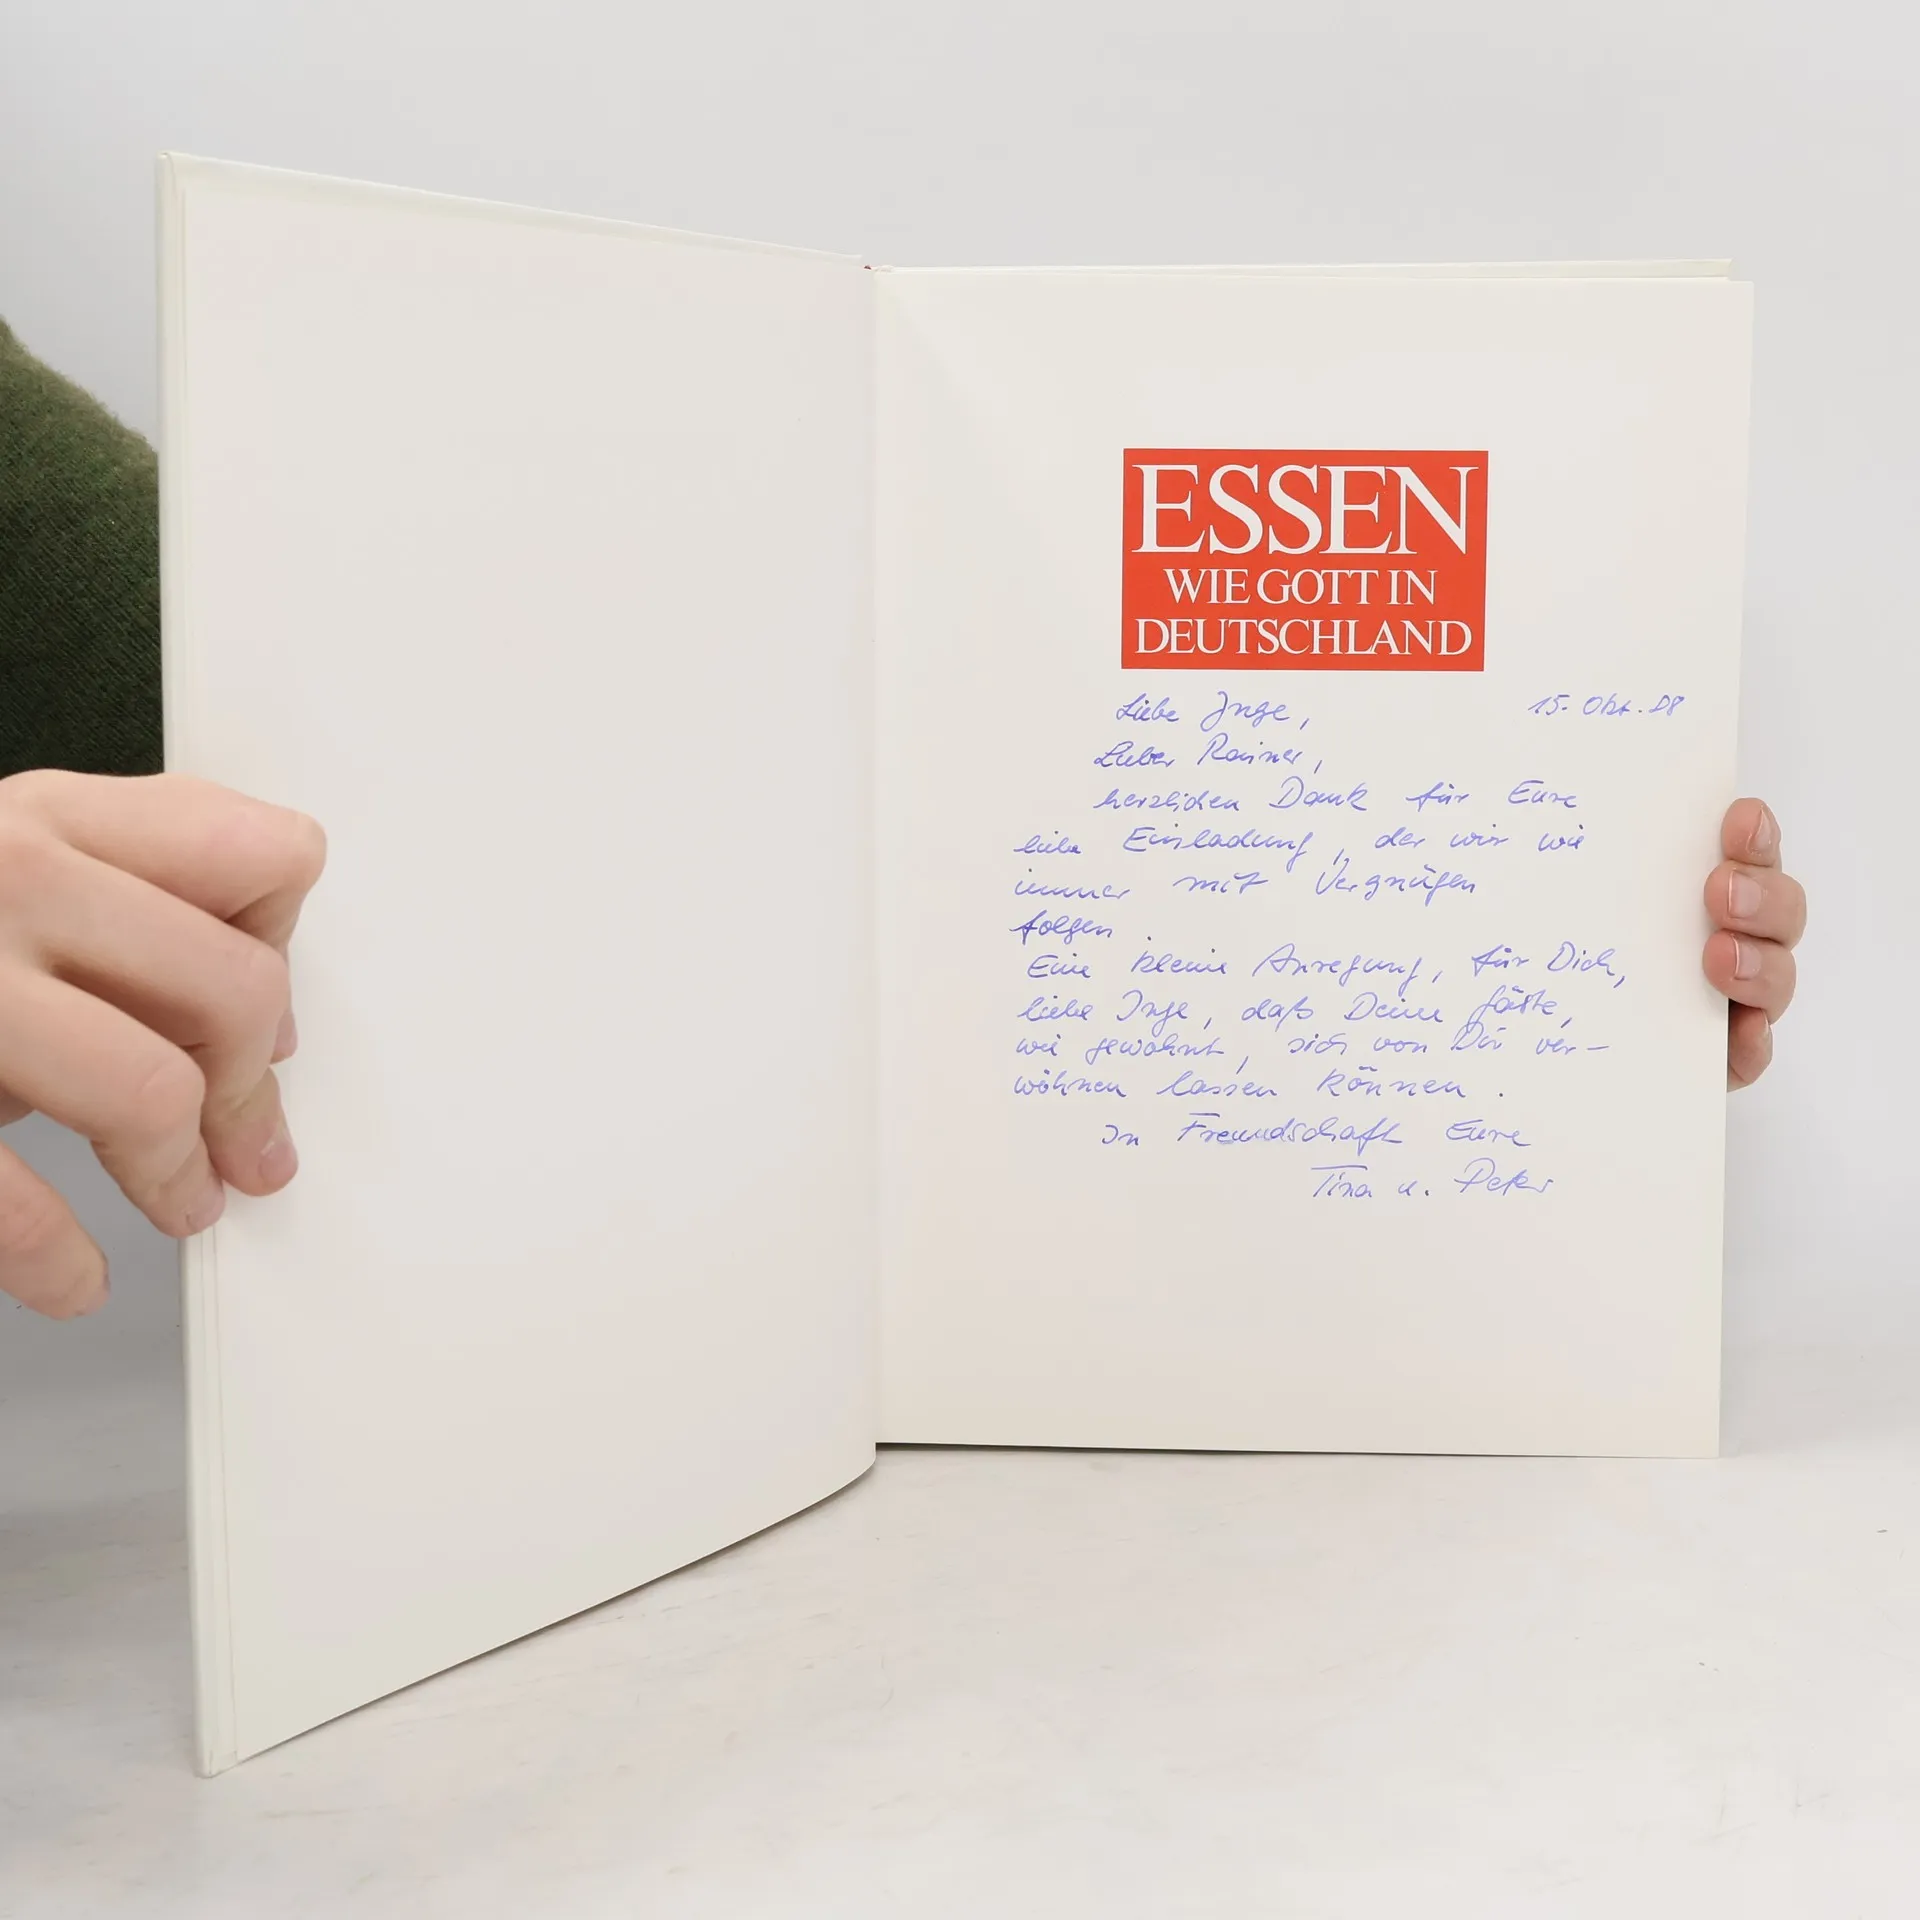 ESSEN
WIE GOTT IN
DEUTSCHLAND
Liebe Inge, 15. Okt. 88
Lieber Rainer,
herzlichen Dank für Eure
liebe Einladung, der wir wie
immer mit Vergnügen
folgen.
Eine kleine Anregung, für Dich,
liebe Inge, daß Deine Gäste,
wie gewohnt, sich von Dir ver-
wöhnen lassen können.
In Freundschaft Eure
Tina u. Peter